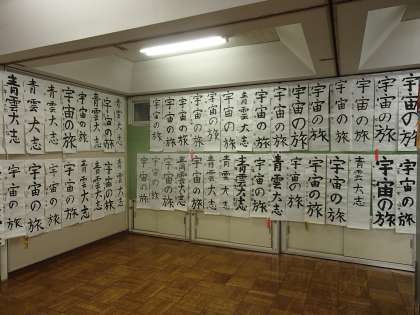 青雲大志
青雲大志
宇宙の旅
宇宙の旅
宇宙の旅
青雲大志
青雲大志
青雲大志
宇宙の旅
宇宙の旅
宇宙の旅
宇宙の旅
宇宙の旅
宇宙の旅
青雲大志
宇宙の旅
宇宙の旅
宇宙の旅
宇宙の旅
宇宙の旅
宇宙の旅
宇宙の旅
宇宙の旅
宇宙の旅
宇宙の旅
宇宙の旅
宇宙の旅
青雲大志
青雲大志
青雲大志
宇宙の旅
宇宙の旅
宇宙の旅
青雲大志
宇宙の旅
宇宙の旅
青雲大志
青雲大志
宇宙の旅
青雲大志
宇宙の旅
宇宙の旅
宇宙の旅
青雲大志
宇宙の旅
宇宙の旅